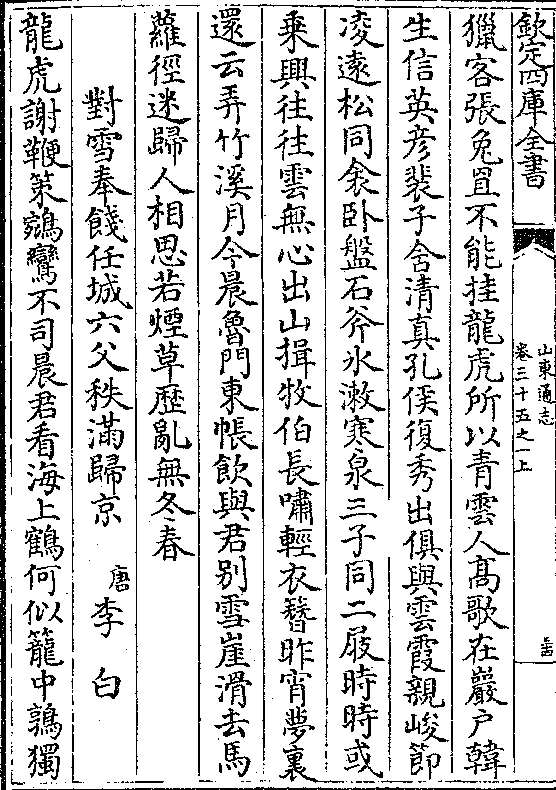 欽定四庫全書
山東通志
卷三十五之一上
獵客張兔罝不能挂龍虎所以青雲人高歌在巖户韓
生信英彥裴子含清真孔侯復秀出俱與雲霞親峻節
凌遠松同衾卧盤石斧氷漱寒泉三子同二屐時時或
乗興往往雲無心出山揖牧伯長嘯輕衣簪昨宵夢裏
還云弄竹溪月今晨魯門東帳飲與君别雪崖滑去馬
蘿徑迷歸人相思若煙草歴亂無冬春
對雪奉餞任城六父秩滿歸京　唐李白
龍虎謝鞭策鵷鸞不司晨君看海上鶴何似籠中鶉獨